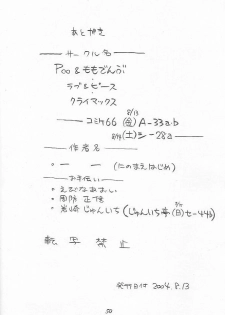 あとがき
サークル名
Poo & ももでんぶ
ラブ&ピース
クライマックス
8/13
コミケ66 (金) A-33a.b
8/14 (土) シ-28a
作者名
・一 一 (にのまえはじめ)
お手伝い
・えびなあおい
・周防 正性
・岩崎じゅんいち (じゅんいち亭 (日) セ-44b)
転写禁止
発行日付 2004.8.13
50